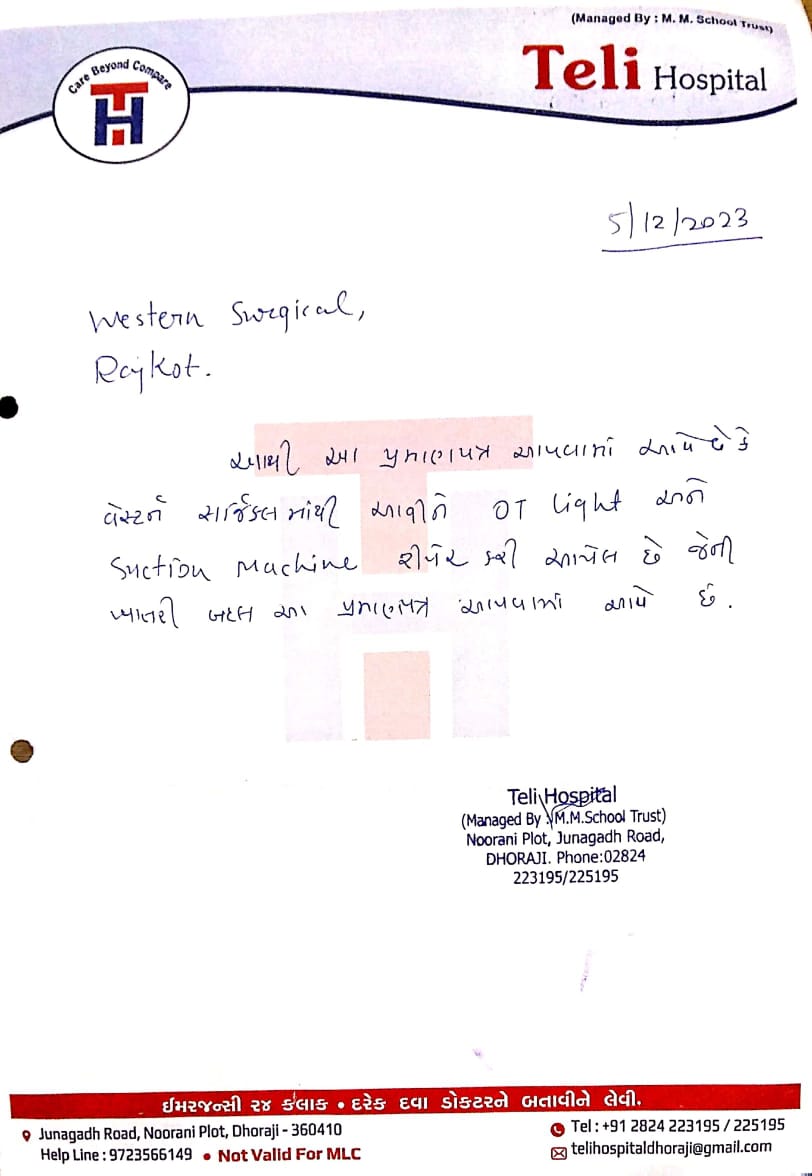 (Managed By : M. M. School Trust)
Care Beyond Compare
TH
Teli Hospital
5/12/2023
Western Surgical,
Rajkot.
આથી આ પ્રમાણપત્ર આપવામાં આવે છે કે
વેસ્ટર્ન સર્જિકલ માંથી આવીને OT light અને
Suction Machine રીપેર કરી આપેલ છે જેની
ખાતરી બદલ આ પ્રમાણપત્ર આપવામાં આવે છે.
Teli Hospital
(Managed By M.M.School Trust)
Noorani Plot, Junagadh Road,
DHORAJI. Phone:02824
223195/225195
ઈમરજન્સી ૨૪ કલાક • દરેક દવા ડોકટરને બતાવીને લેવી.
Junagadh Road, Noorani Plot, Dhoraji - 360410
Tel : +91 2824 223195 / 225195
Help Line : 9723566149 • Not Valid For MLC
telihospitaldhoraji@gmail.com